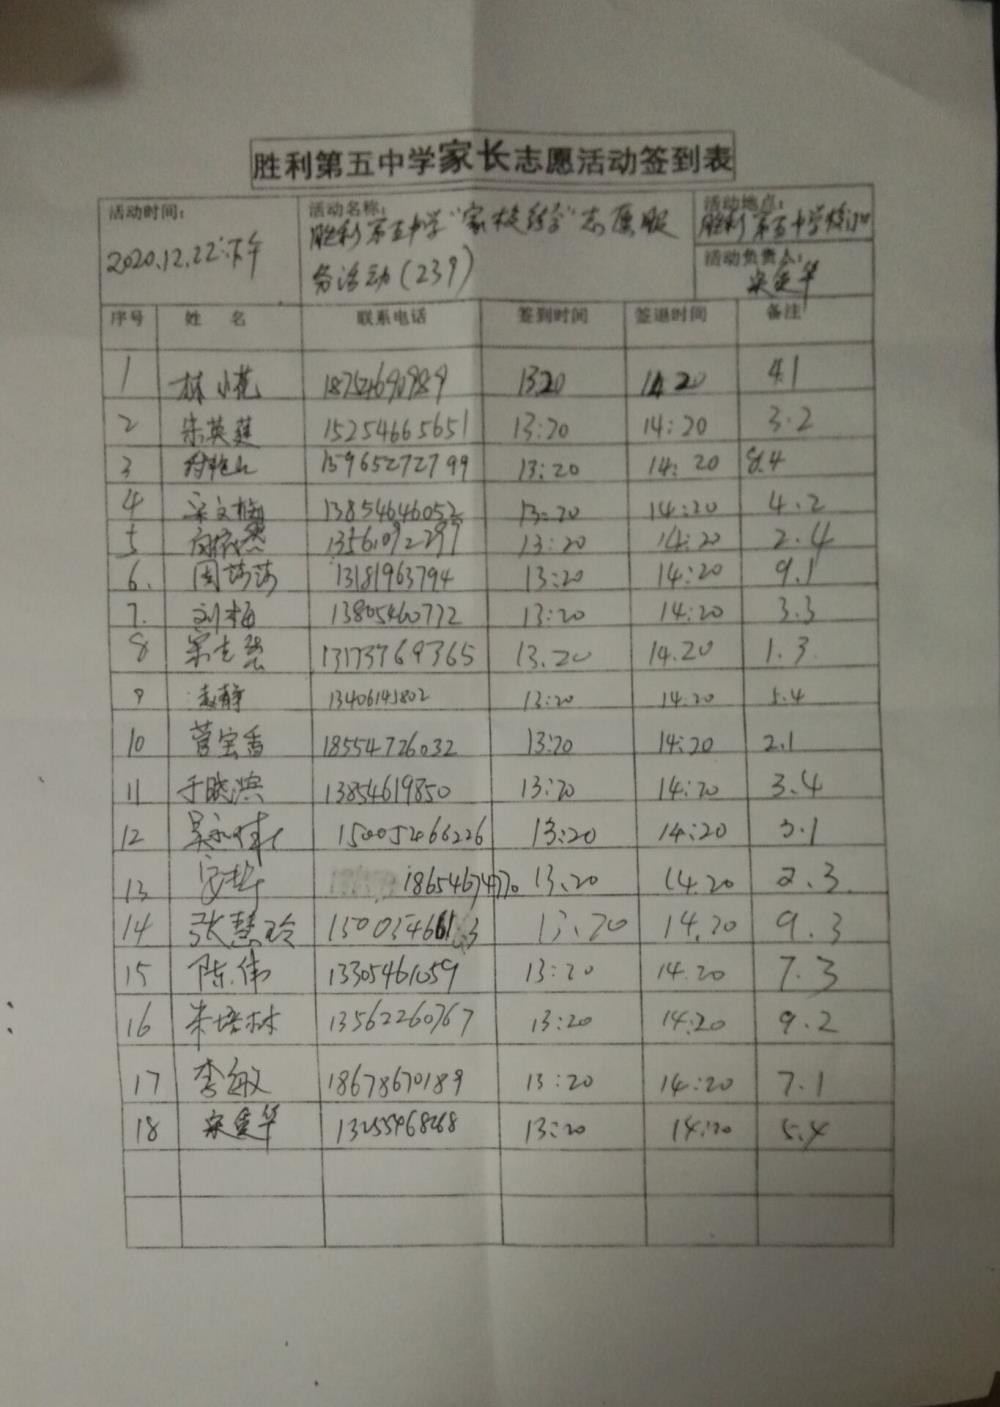 胜利第五中学家长志愿活动签到表
活动时间: 活动名称: 活动地点:
2020.12.22下午 胜利第五中学"家校 "志愿服务活动(239) 胜利第五中学校门口
活动负责人:
宋爱华
序号 姓 名 联系电话 签到时间 签退时间 备注
1 林小花 18754690989 13:20 14:20 4.1
2 宋英莲 15254665651 13:20 14:20 3.2
3 15965272799 13:20 14:20 8.4
4 宋文梅 13854646052 13:20 14:20 4.2
5 13561092297 13:20 14:20 2.4
6. 周莎莎 13181963794 13:20 14:20 9.1
7. 刘梅 13805460772 13:20 14:20 3.3
8 13173769365 13.20 14.20 1.3
9 赵静 13406145802 13:20 14:20 5.4
10 菅宝香 18554726032 13:20 14:20 2.1
11 于晓滨 13854619850 13:20 14:20 3.4
12 吴永伟 15005466226 13:20 14:20 3.1
13 18654674770 13.20 14.20 2.3
14 张慧玲 13:20 14.20 9.3
15 陈伟 13305461059 13:20 14.20 7.3
16 朱培林 13562260767 13:20 14:20 9.2
17 李敏 18678670189 13:20 14:20 7.1
18 宋爱华 13255468268 13:20 14:20 5.4